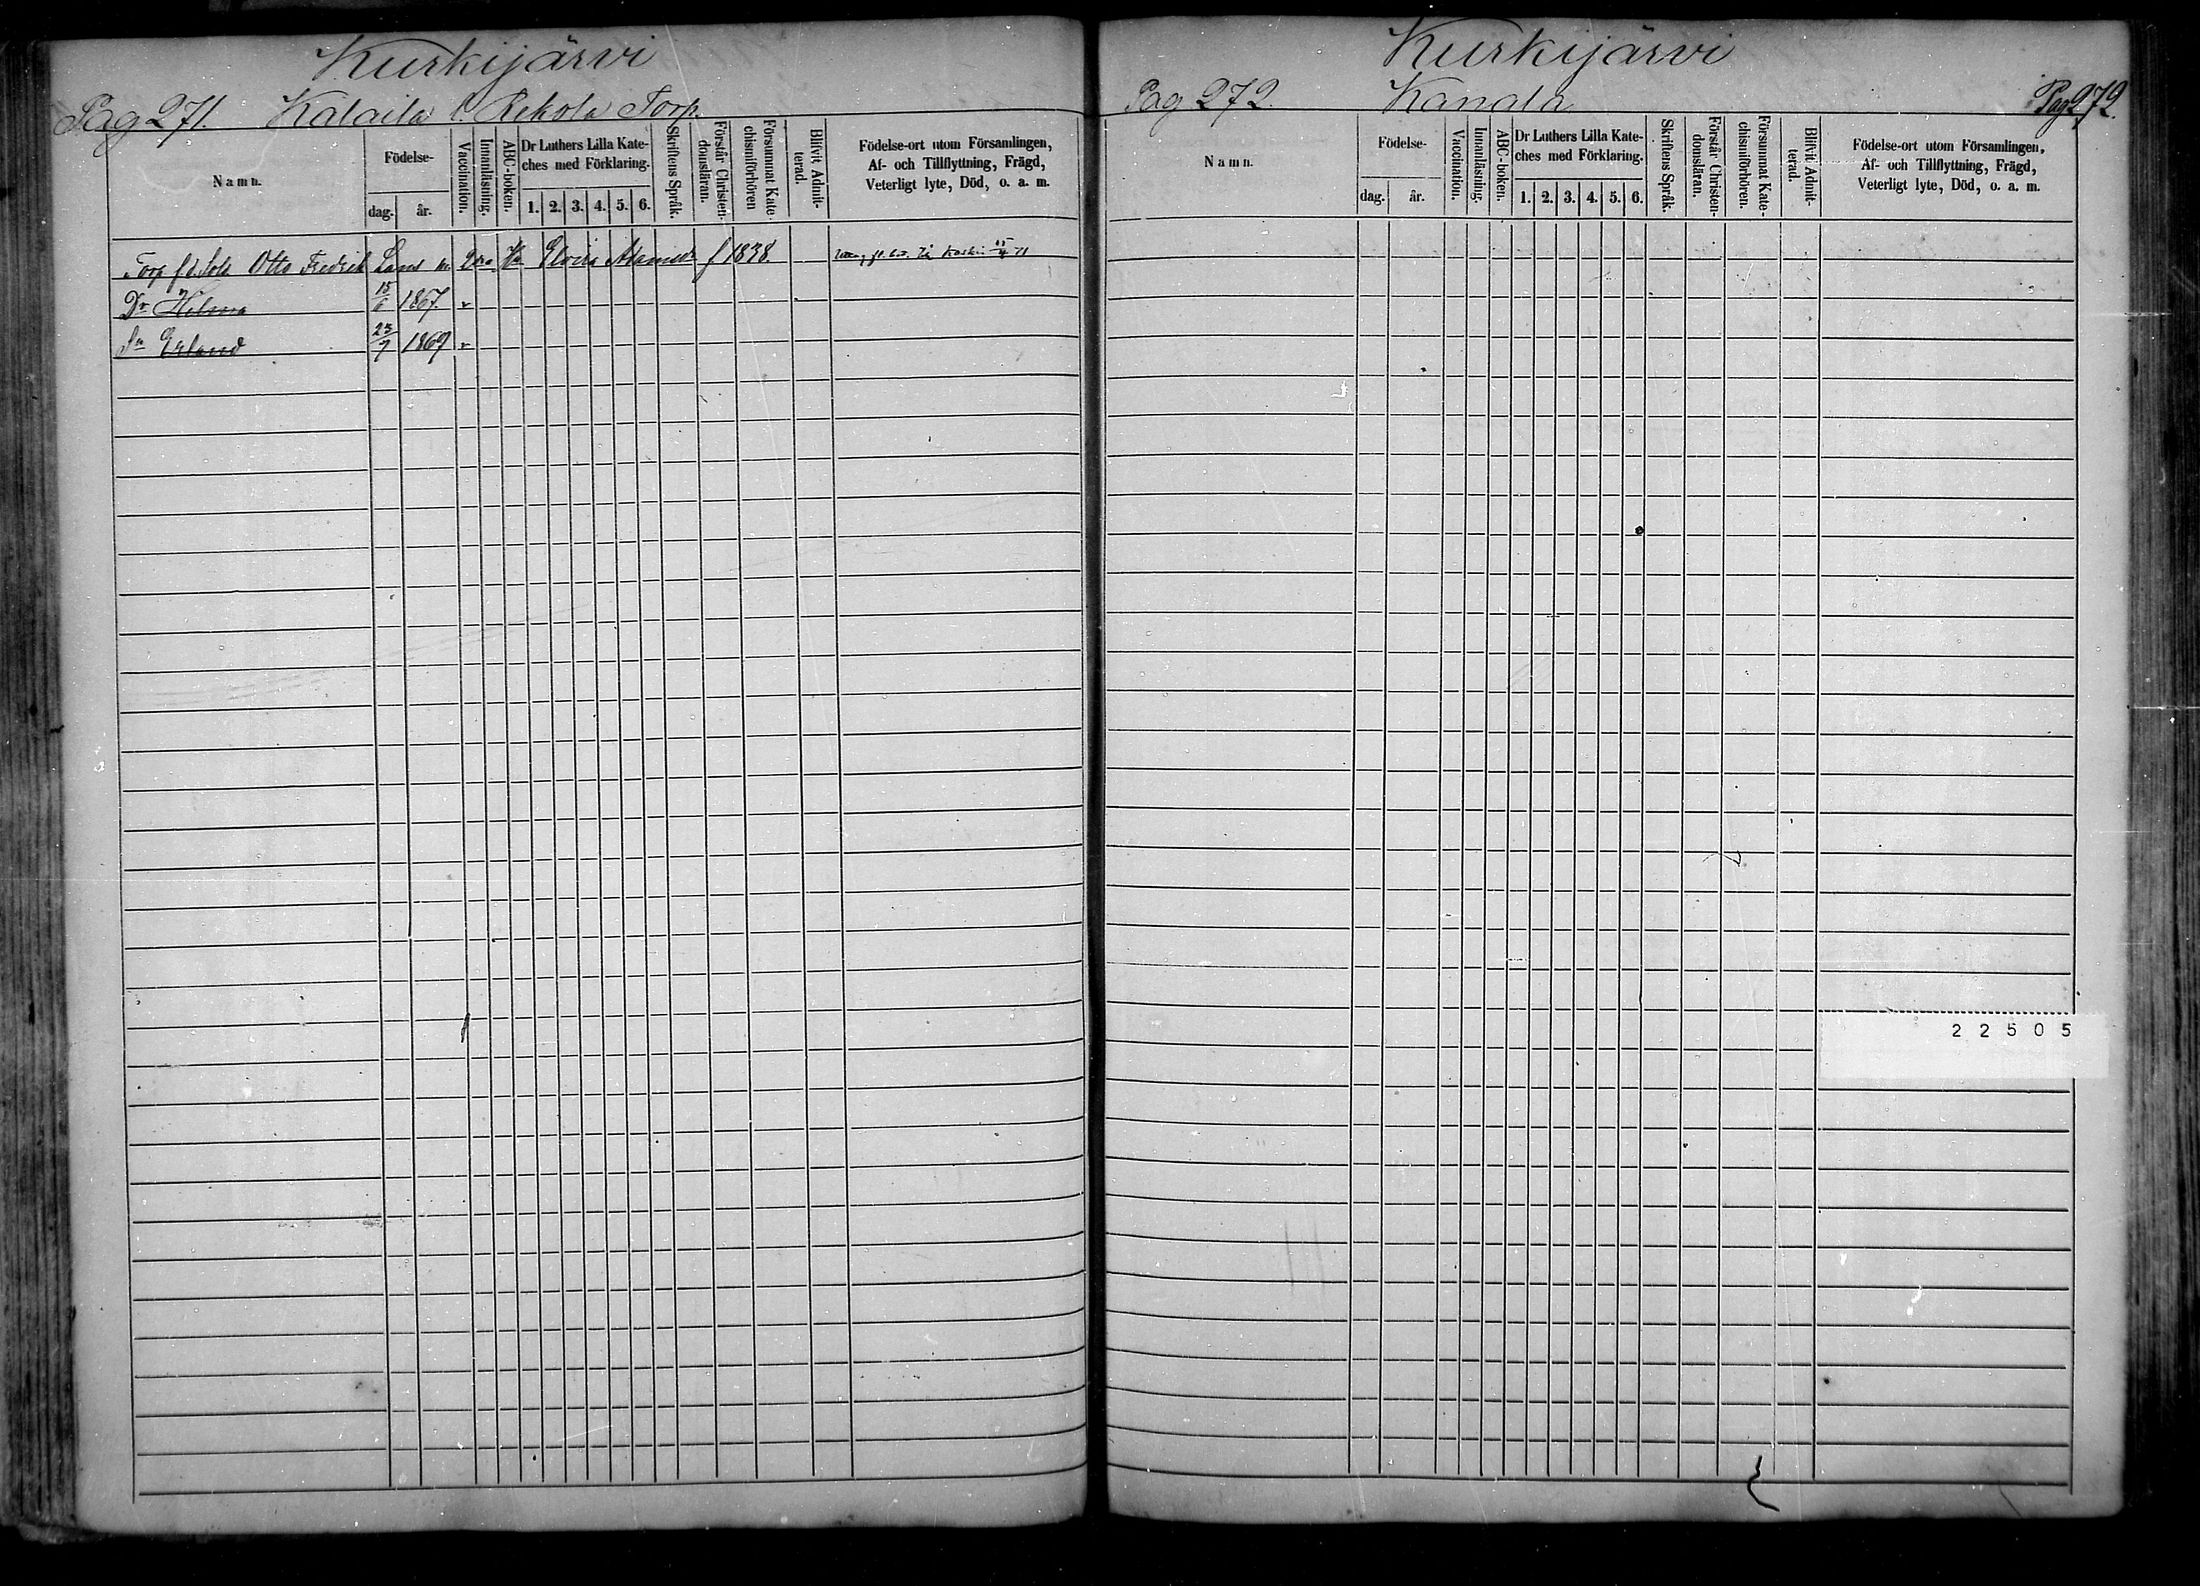 Kurkijärvi
Pag 271. Kalaila l. Rekola Torp.
Namn.
Födelse-
dag. år.
Vaccination.
Innanläsning.
ABC-boken.
Dr Luthers Lilla Kate-
ches med Förklaring.
1. 2. 3. 4. 5. 6.
Skriftens Språk.
Förstår Christen-
domsläran.
Försummat Kate-
chismiförhören
Blifvit Admit-
terad.
Födelse-ort utom Församlingen,
Af- och Tillflyttning, Frägd,
Veterligt lyte, Död, o. a. m.
Torp f d Sold Otto Fredrik Lans 2dra Elvira Adamsdr f 1838.
Dr Hilma 15/6 1867. v
Sn Erland 23/7 1869 v
Kurkijärvi
Pag 272. Kanala Pag 272.
Namn.
Födelse-
dag. år.
Vaccination.
Innanläsning.
ABC-boken.
Dr Luthers Lilla Kate-
ches med Förklaring.
1. 2. 3. 4. 5. 6.
Skriftens Språk.
Förstår Christen-
domsläran.
Försummat Kate-
chismiförhören.
Blifvit Admit-
terad.
Födelse-ort utom Församlingen,
Af- och Tillflyttning, Frägd,
Veterligt lyte, Död, o. a. m.
22505